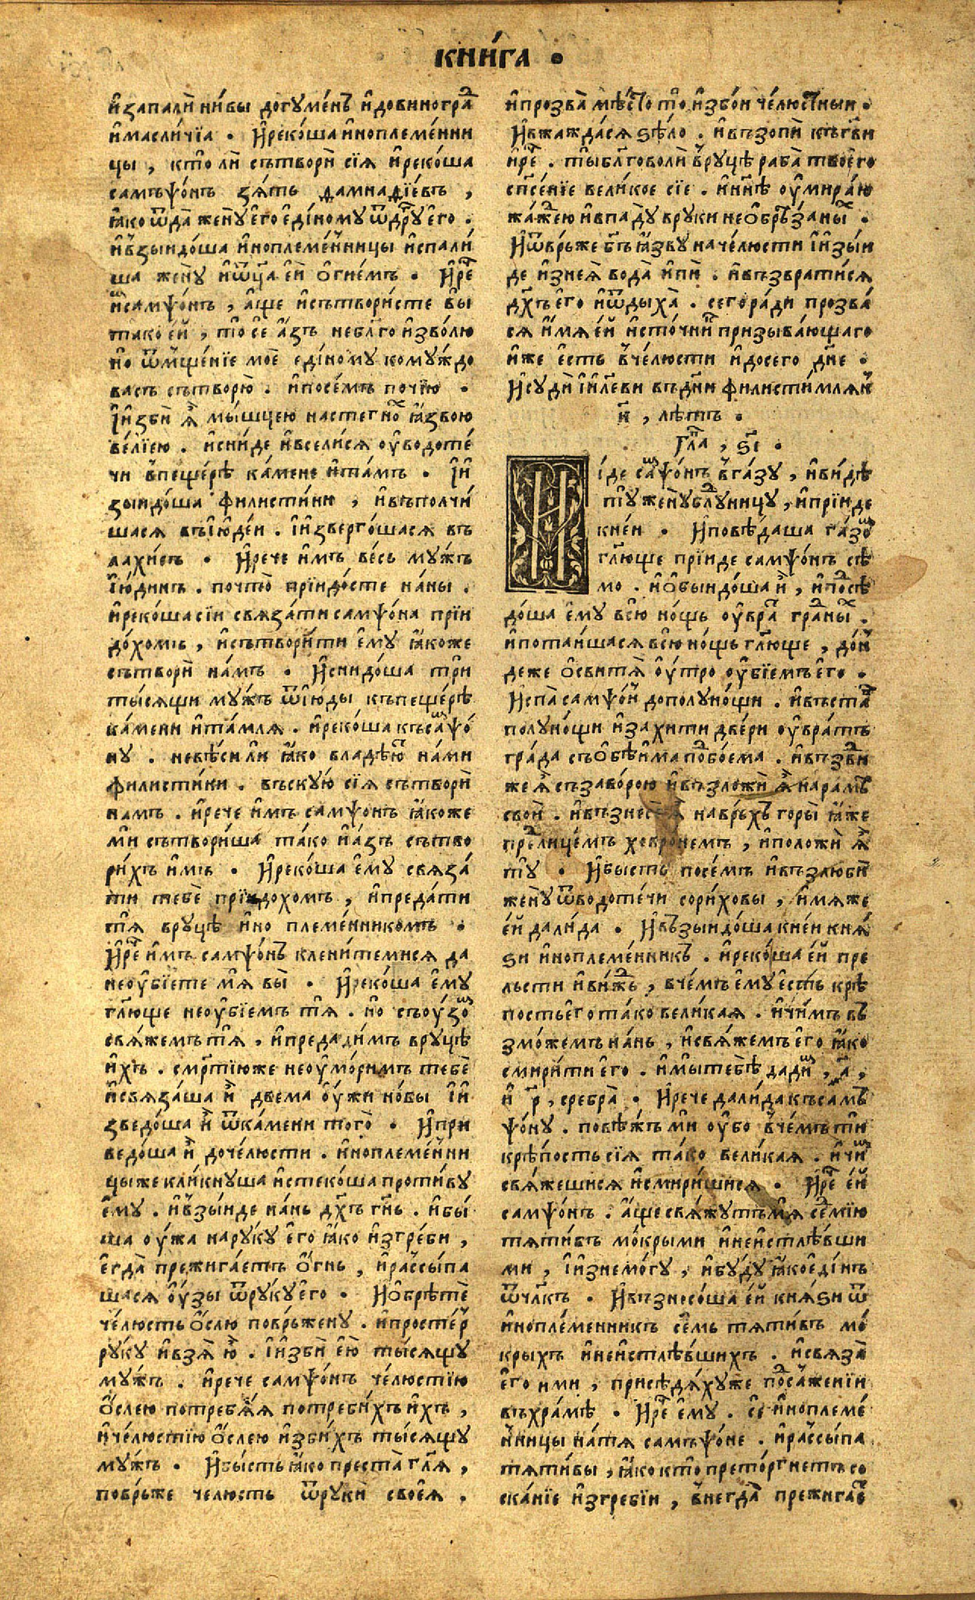 кни́га .
и҆запалѝ ни́вы догꙋме́нъ и҆довиногра́
и҆масли́чїа . И҆реко́ша и҆ноплеме́нни
цы , кто̀ лѝ сътворѝ сїѧ̀ и҆реко́ша
самъѱо́нъ зѧ́ть дамнадїе́въ ,
ꙗ҆́ко ѿда̀ женꙋ̀ е҆го̀ е҆ди́номꙋ ѿдрꙋ́г е҆го̀ .
и҆възыидо́ша и҆ноплеме́нницы и҆спали́
ша женꙋ̀ и҆ѿца̀ е҆ѝ ѻ҆гне́мъ . И҆рѐ
и҆̀самѱо́нъ , а҆́ще и҆сътвори́сте вы̀
тако̀ е҆́й , то̀ се а҆́зъ небл҃го и҆зво́лю
но̀ ѿмще́нїе моѐ е҆ди́номꙋ комꙋ́ждо
васъ сътворю̀ . и҆посе́мъ почі́ю .
І҆и҆збѝ ѧ҆̀ мы́шцею настегно̀ ꙗ҆́звою
ве́лїею . и҆сни́де и҆всели́сѧ ᲂу҆водоте́
чи въпеще́рѣ ка́мене и҆та́мъ . І҆и҆
зыидо́ша филисти́ни , и҆въполчи́
шасѧ въі҆ю҆де́и . І҆и҆зверго́шасѧ въ
лахи́съ . И҆рече и҆́мъ ве́сь мꙋ́жъ
і҆ю́динъ . почто̀ прїидо́сте на́ны .
и҆реко́ша сїи свѧза́ти самѱо́на прїи
до́хомъ , и҆сътвори́ти е҆мꙋ̀ ꙗ҆́коже
сътворѝ на́мъ . И҆снидо́ша трѝ
ты́сѧщи мꙋ́жъ ѿі҆ю́ды къпеще́рѣ
ка́мени и҆та́млѧ . и҆реко́ша късаⷨѱо́
нꙋ . невѣ́си ли ꙗ҆́ко владѣ́ю на́ми
филисти́ни . въскꙋ́ю сїѧ̀ сътворѝ
на́мъ . и҆рече и҆́мъ самѱо́нъ ꙗ҆́коже
мѝ сътвори́ша та́ко и҆а҆́зъ сътво
ри́хъ и҆́мъ . И҆реко́ша е҆мꙋ̀ свѧза́
ти тебѐ прїидо́хомъ , и҆преда́ти
тѧ̀ врꙋцѣ̀ и҆но племе́нникомъ .
И҆рѐ и҆́мъ самѱо́нъ клени́темисѧ да
неᲂу҆бїе́те мѧ̀ вы̀ . И҆реко́ша е҆мꙋ̀
гл҃юще неᲂу҆бїе́мъ тѧ̀ . но̀ съᲂу҆́зоⷨ
свѧ́жемъ тѧ̀ , и҆предади́мъ врꙋцѣ̀
и҆́хъ . сме́ртїюже неᲂу҆мори́мъ тебѐ
и҆свѧза́ша и҆̀ двема ᲂу҆́жи но́вы І҆и҆
зведо́ша и҆̀ ѿка́мени того̀ . И҆при
ведо́ша и҆̀ доче́люсти . и҆ноплеме́нни
цы́же кли́кнꙋша и҆стеко́ша проти́вꙋ
е҆мꙋ̀ . и҆взы́иде на́нь дх҃ъ гн҃ь . и҆бы́
ша ᲂу҆́жа нарꙋ́кꙋ е҆го̀ ꙗ҆́ко и҆́згреби ,
е҆гда̀ прежига́етъ ѻ҆́гнь , и҆рассы́па
шасѧ ᲂу҆́зы ѿрꙋкꙋ̀ е҆го̀ . И҆ѻ҆брѣ́те
че́люсть ѻ҆́слю пове́ржену . и҆просте́р
рꙋ́кꙋ и҆взѧ̀ ю҆̀ . І҆и҆збѝ е҆́ю ты́сѧщꙋ
мꙋ́жъ . и҆рече самѱо́нъ че́люстїю
ѻ҆́слею потреблѧ́ѧ потреби́хъ и҆́хъ ,
и҆че́люстїю ѻ҆́слею и҆зби́хъ ты́сѧщꙋ
мꙋ́жъ . И҆бы́сть ꙗ҆́ко преста̀ гл҃ѧ ,
повръ́же че́люсть ѿрꙋкѝ своеѧ̀ .
и҆прозва̀ мѣ́сто то̀ , и҆збо́и че́люстныи .
И҆вжажда́сѧ ѕѣло̀ . и҆възопѝ къгв҃и
и҆рѐ . ты̀ блг҃оволѝ врꙋцѣ̀ раба̀ твоего̀
сп҃се́нїе вели́кое сїѐ . и҆нн҃ѣ ᲂу҆мира́ю
жа́ждею и҆впадꙋ̀ врꙋки необрѣ́заныⷯ .
И҆ѿвръ́же бг҃ъ ꙗ҆́звꙋ наче́люсти і҆и҆зы́и
де и҆знеѧ̀ вода̀ и҆пѝ . и҆възврати́сѧ
дх҃ъ е҆го̀ и҆ѿдыха̀ . сего́ради прозва́
сѧ и҆́мѧ е҆́й и҆сто́чникъ призыва́ющаго
и҆́же е҆́сть въче́люсти и҆досего̀ дн҃е .
И҆сꙋдѝ і҆и҃леви въдн҃и филисти́млѧнъ
к҃ , лѣ́тъ .
Гла̀ , ѕ҃і .
И і́де саⷨѱо́нъ вга́зꙋ , и҆ви́дѣ
тꙋ̀ женꙋ̀ блꙋдни́цꙋ , и҆прїи́де
кне́и . И҆повѣ́даша га́зоⷨ
гл҃юще прїи́де самѱо́нъ сѣ́
мо . и҆ѻ҆быидо́ша и҆̀ , и҆присѣ
до́ша е҆мꙋ̀ всю̀ но́щь ᲂу҆вра́т гра́дныⷯ .
и҆потаи́шасѧ всю̀ но́щь гл҃юще , до́н
деже ѻ҆свита́ ᲂу҆́тро ᲂу҆бїе́мъ е҆го̀ .
И҆спа̀ самѱо́нъ дополꙋно́щи . и҆въста́
полꙋно́щи и҆захи́ти две́ри ᲂу҆вра́тъ
гра́да съѻ҆бѣи́ма подбо́ема . и҆въздви́
же ѧ҆̀ съзаво́рою и҆възложѝ ѧ҆̀ нара́мъ
своѝ . и҆възнесѐ ѧ҆̀ навръ́хъ горы̀ ꙗ҆́же
предлице́мъ хевро́немъ , и҆положѝ ѧ҆̀
тꙋ̀ . И҆бы́сть посе́мъ и҆възлюбѝ
женꙋ̀ ѿводоте́чи сори́ховы , и҆́мѧже
е҆́й дали́да . И҆възыидо́ша кне́и кнѧ́
ѕи и҆ноплеме́нникъ . и҆реко́ша е҆́й пре
льсти и҆ви́жъ , вче́мъ е҆мꙋ̀ е҆́сть крѣ́
пость е҆го̀ та́ко вели́каѧ . и҆чи́мъ въ
змо́жемъ на́нь , и҆свѧ́жемъ е҆го̀ ꙗ҆́ко
смири́ти е҆го̀ . и҆мы̀ тебѣ̀ дади́мъ , ҂а҃ ,
и҆ р҃ , сребра̀ . И҆рече дали́да къса́мъ
ѱо́нꙋ . повѣ́жъ мѝ ᲂу҆̀бо вче́мъ тѝ
крѣ́пость сїѧ̀ та́ко вели́каѧ . и҆чи́мъ
свѧ́жешисѧ и҆смири́шисѧ . И҆рѐ е҆́й
самѱо́нъ . а҆́ще свѧ́жꙋтъ мѧ̀ се́мїю
тѧти́въ мо́крыми и҆неистлѣ́вши
ми , і҆и҆знемо́гꙋ , и҆бꙋ́дꙋ ꙗ҆́ко е҆ди́нъ
ѿчл҃къ . И҆възнесо́ша е҆́й кнѧ́ѕи ѿ
и҆ноплеме́нникъ се́мь тѧти́въ мо́
крыхъ и҆неистлѣ́вшихъ . и҆свѧза̀
е҆го̀ и҆ми , присѣдѧ́хꙋже посаже́нїи
въхра́мѣ . И҆рѐ е҆мꙋ̀ . сѐ и҆ноплеме́
нницы на́тѧ самъѱо́не . и҆рассы́па
тѧти́вы , ꙗ҆́ко кто̀ прето́ргнетъ со
ска́нїе и҆́згребїи , внегда̀ прежига́е